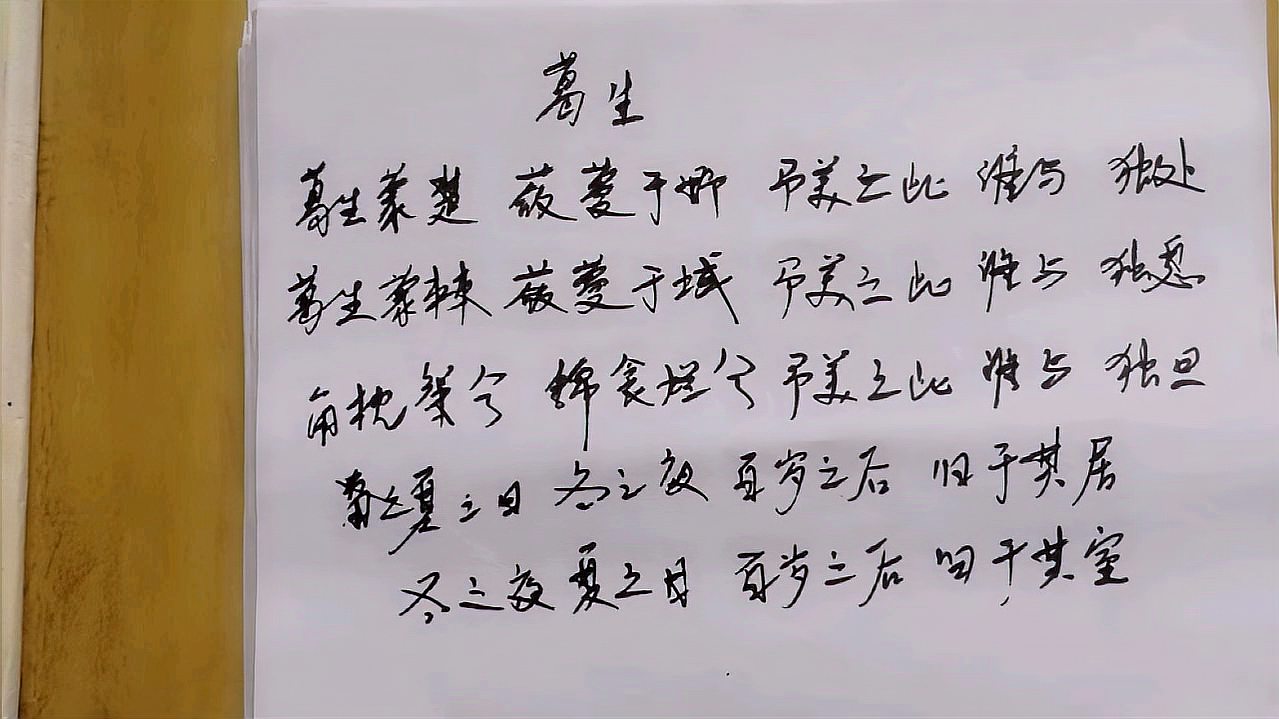 葛生
葛生蒙楚 蔹蔓于野 予美亡此 谁与 独处
葛生蒙棘 蔹蔓于域 予美亡此 谁与 独息
角枕粲兮 锦衾烂兮 予美亡此 谁与 独旦
夏之日 冬之夜 百岁之后 归于其居
冬之夜 夏之日 百岁之后 归于其室